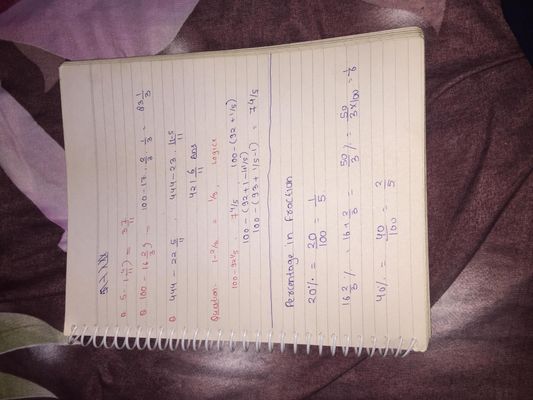 Q 5 - 1 4/11) = 3 7/11
Q 100 - 16 2/3) = 100 - 17 . 2/3 . 1/3 = 83 1/3
Q 444 - 22 5/11 , 444 - 23 . 11-5/11
421 6/11 Ans
Question: 1 - 2/3 = 1/3, Logics
100 - 92 1/5 = 7 4/5 100 - (92 + 1/5)
100 - (92 + 1 - 1 1/5)
100 - (93 + 1/5 - 1) = 7 4/5
Percentage in Fraction
20% = 20/100 = 1/5
16 2/3 % , 16 + 2/3 = 50/3 % = 50/3×100 = 1/6
40% = 40/100 = 2/5